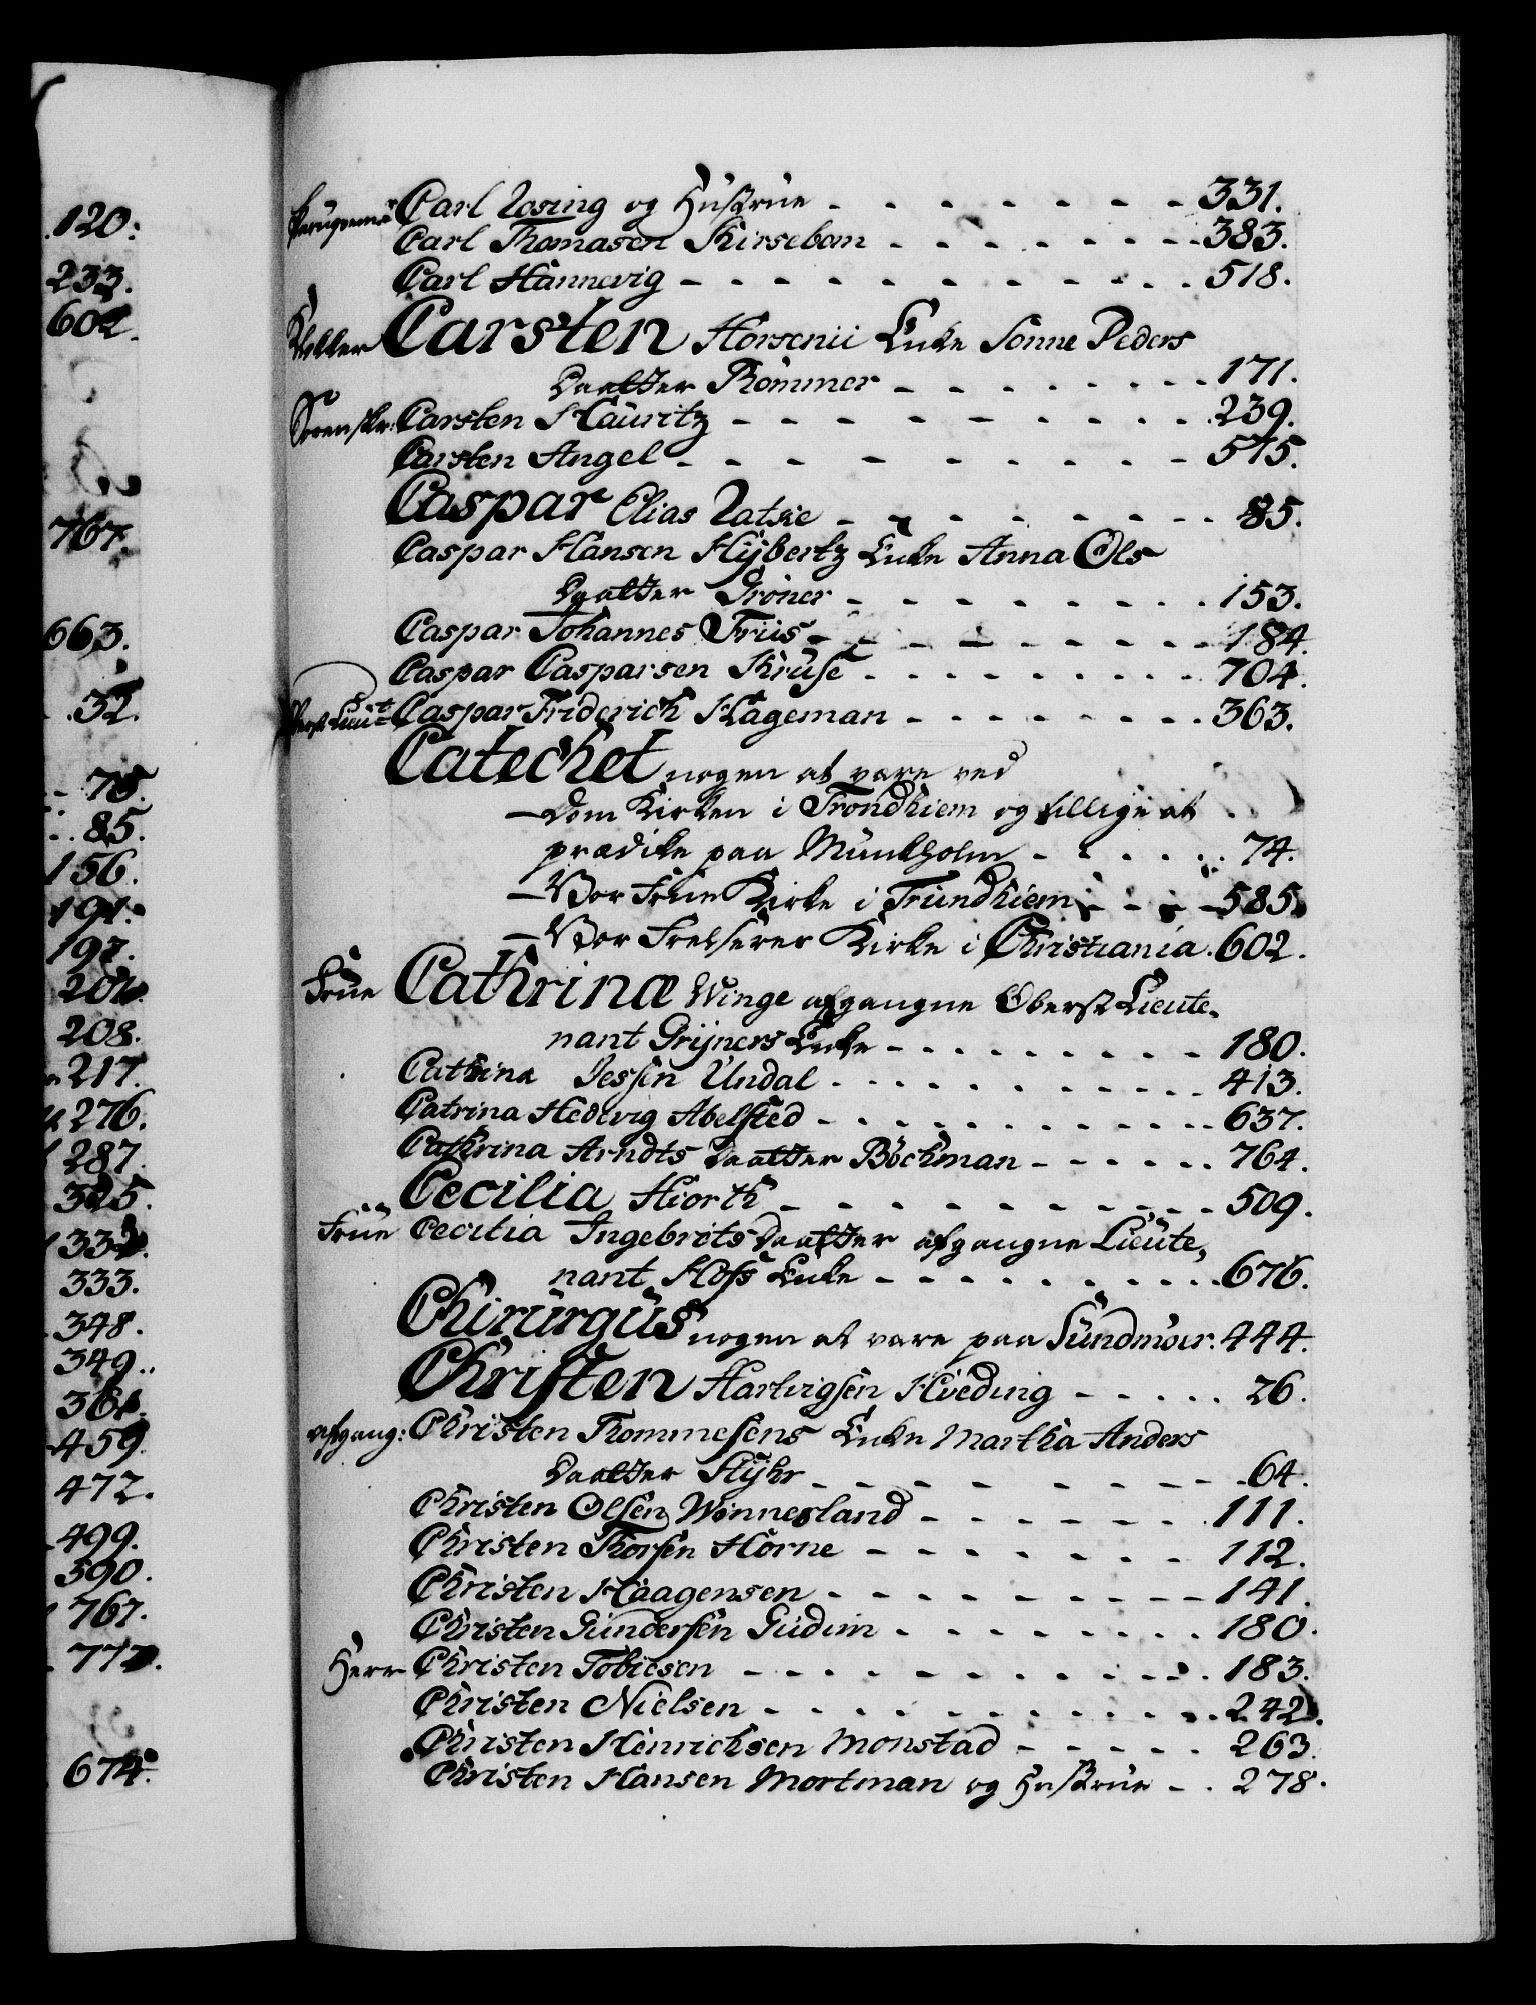 120.
233.
602.
767.
663.
32.
78.
85.
156.
191.
197.
201.
208.
217.
276.
287.
325.
332.
333.
348.
349.
361.
459.
472.
499.
590.
767.
772.
674.
Carl Rosing og Hustrue - - - 331.
Carl Thomasen Kirsebom - - - 383.
Carl Hannevig - - - 518.
Carsten Horsenii Enke Sonne Peders
Daatter Rommer - - - 171.
Sorenskr: Carsten Hauritz - - - 239.
Carsten Angel - - - 575.
Caspar Elias Ratsie - - - 85.
Caspar Hansen Hÿbertz Enke Anna Ols
Daatter Groner - - - 153.
Caspar Johannes Friis - - - 184.
Caspar Casparsen Kruse - - - 704.
Oberst Lieut Caspar Friderich Hageman - - - 363.
Catechet nogen at være ved
- Dom Kirken i Trondhiem og tillige at
prædike paa Munkholm - - - 74.
- Vor Frue Kirke i Trundhiem - - - 585.
- Vor Frelseres Kirke i Christiania. 602.
Frue Cathrinæ Winge afgangne Oberst Lieute-
nant Grÿners Enke - - - 180.
Cathrina Jessen Undal - - - 413.
Catrina Hedevig Abelsted - - - 637.
Cathrina Arndts Daatter Böckman - - - 764.
Cecilia Hiorth - - - 509.
Frue Cecilia Ingebrits Daatter afgangne Lieute-
nant Hofs Enke - - - 676.
Chirurgus nogen at være paa Sundmöer. 444.
Christen Hartvigsen Hveding - - - 26.
afgang: Christen Trommesens Enke Martha Anders
Daatter Hÿhr - - - 64.
Christen Olsen Winnesland - - - 111.
Christen Thorsen Horne - - - 112.
Christen Haagensen - - - 141.
Christen Gundersen Gudim - - - 180.
Herr Christen Tobiesen - - - 183.
Christen Nielsen - - - 242.
Christen Henrichsen Monstad - - - 263.
Christen Hansen Mortman og Hustrue - . 278.